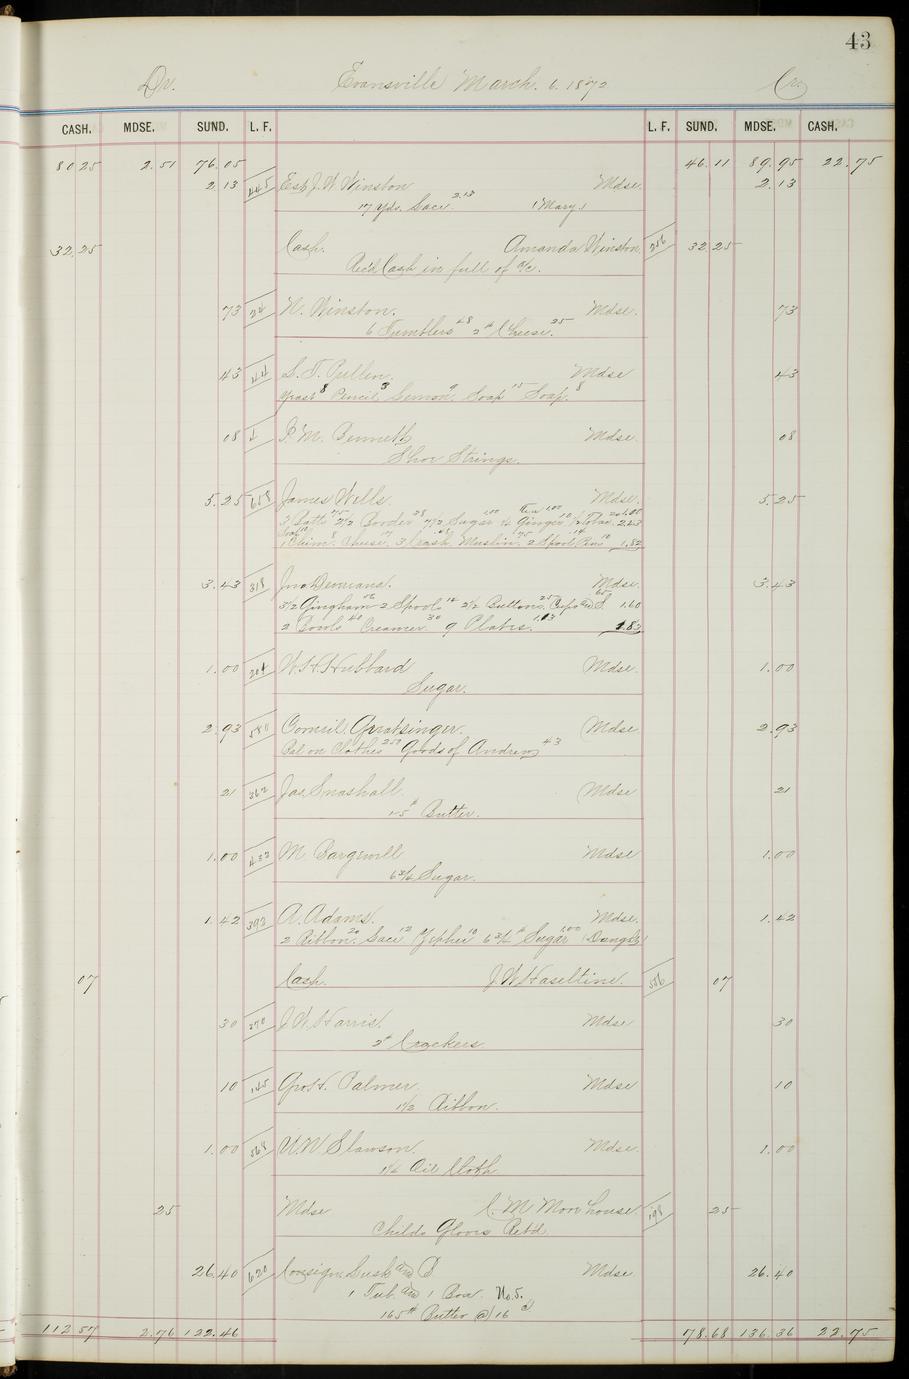 43
Dr. Evansville March. 6. 1872 Cr.
CASH. MDSE. SUND. L. F. L. F. SUND. MDSE. CASH.
80 25 2.51 76.05 46.11 89.95 22.75
2.13 445 Est J. W. Winston Mdse. 2.13
17 yds. Lace 2.13 (Mary)
32.25 Cash. Amanda Winston 256 32 25
Recd Cash in full of a/c.
73 24 N. Winston. Mdse. 73
6 Tumblers 48 2# Cheese. 25
43 44 S. T. Pullen. Mdse 43
Yeast 8 Pencil. 3 Lemon. 9 Soap 15 Soap. 8
08 P. M. Bennett Mdse. 08
Shoe Strings.
5.25 658 James Wells. Mdse. 5.25
3 Batts 75 2 1/2 Border 28 7 1/2 Sugar 1.00 Tea 1.00 Ginger 10
Cheese. 17 3 Crash Muslin. 75 2 Spool Pins 10 1.82
3.43 318 Jno Mdse. 3.43
3 1/2 Gingham 2 Spools 14 2 1/2 Buttons 25 Cups and S. 1.60
2 Bowls 40 Creamer 30 9 Plates. 1.13 1.83
1.00 204 W. H. Hubbard Mdse. 1.00
Sugar.
2.93 580 Mdse. 2.93
Bal on Clothes 2.50 Goods of Andrew 43
21 362 Jas. Snashall. Mdse 21
1.5# Butter.
1.00 433 M. Bargewell Mdse 1.00
6 3/4 Sugar.
1.42 393 A. Adams. Mdse. 1.42
2 Ribbon. 20 Lace 12 Zepher 10 6 3/4# Sugar 1.00 (Daught)
07 Cash. J. W. Haseltine. 556 07
30 370 J. W. Harris. Mdse 30
2# Crackers.
10 145 Geo. H. Palmer. Mdse 10
1 1/2 Ribbon.
1.00 568 W. W. Slawson. Mdse. 1.00
Oil Cloth
25 Mdse C. M. Morehouse 198 25
Childs Gloves Retd.
26.40 620 Consign. Lusk and B Mdse. 26.40
1 Tub. and 1 Box. No. 5.
165# Butter @ 16 ct
112 57 2.76 122.46 78.68 136.36 22.75